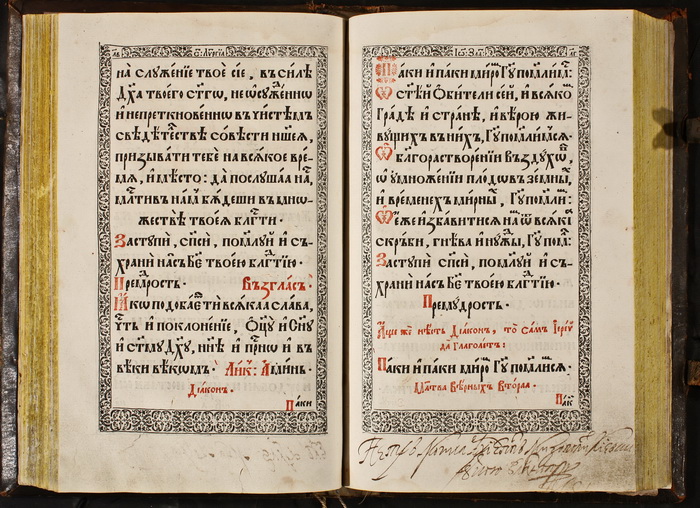 С: Лѹргїа
на слꙋженїе твоѐ сїѐ, въ силѣ
Дх҃а твоегѡ ст҃гѡ, неѡсꙋжденнѡ
и непреткновеннѡ въ чистѣмъ
свѣдѣтствѣ совѣсти нш҃еѧ,
призывати тебѐ на всѧкое вре-
мѧ, и мѣсто: да послꙋшаѧ на,
млтивъ намъ бꙋдеши въ множ
жествѣ твоеѧ блг҃ти.
Застꙋпи, сп҃си, помлꙋй и съ-
храни насъ Бж҃е твоею блгтїю.
Премдрость. Възгласъ.
Ꙗкѡ подобаетъ ти всѧка слава,
чть и поклоненїе, Ѻц҃ꙋ и Сн҃ꙋ
и ст҃мꙋ Дх҃ꙋ, нн҃ѣ и приснѡ и въ
вѣки вѣкѡмъ. Лик: Аминь.
Дїаконъ.
Паки
Іѡ: Зла:
Паки и паки мирѡ Гꙋ помлимъ:
Ѡ стѣй ѻбители сей, и всѧкѡ
градѣ и странѣ, и вѣрою жи-
вꙋщихъ въ нихъ, Гꙋ помлимсѧ.
Ѡ благорастворенїи въздꙋхѡ,
ѡ ꙋмноженїи плодѡвъ земны,
и временехъ мирны, Гꙋ помлим:
Ѡ еже избавитисѧ намъ ѿ всѧкїѧ
скръби, гнѣва и нꙋжды, Гꙋ пом:
Застꙋпи сп҃си, помлꙋй и съ-
храни насъ Бж҃е твоею блгтїю.
Премꙋдрость.
Аще же нѣсть Дїаконъ, то самъ Іерей
да глаголетъ:
Паки и паки мирѡ Гꙋ помлимсѧ:
Млтва вѣрныхъ вторая.
Пак